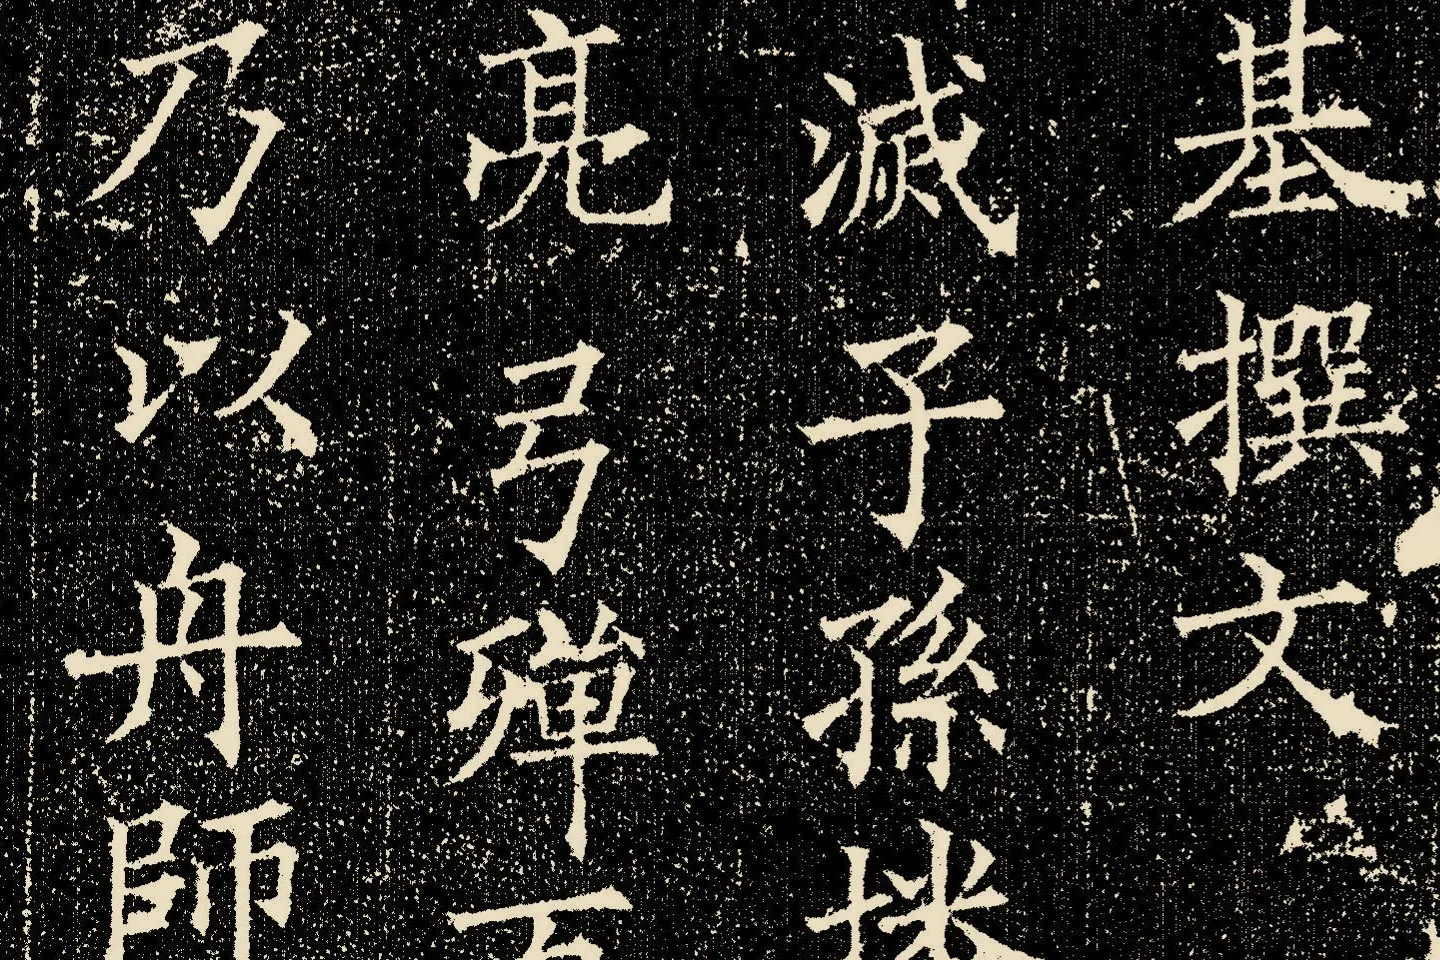 基撰文
滅子孫播
亮弓殫
乃以舟師